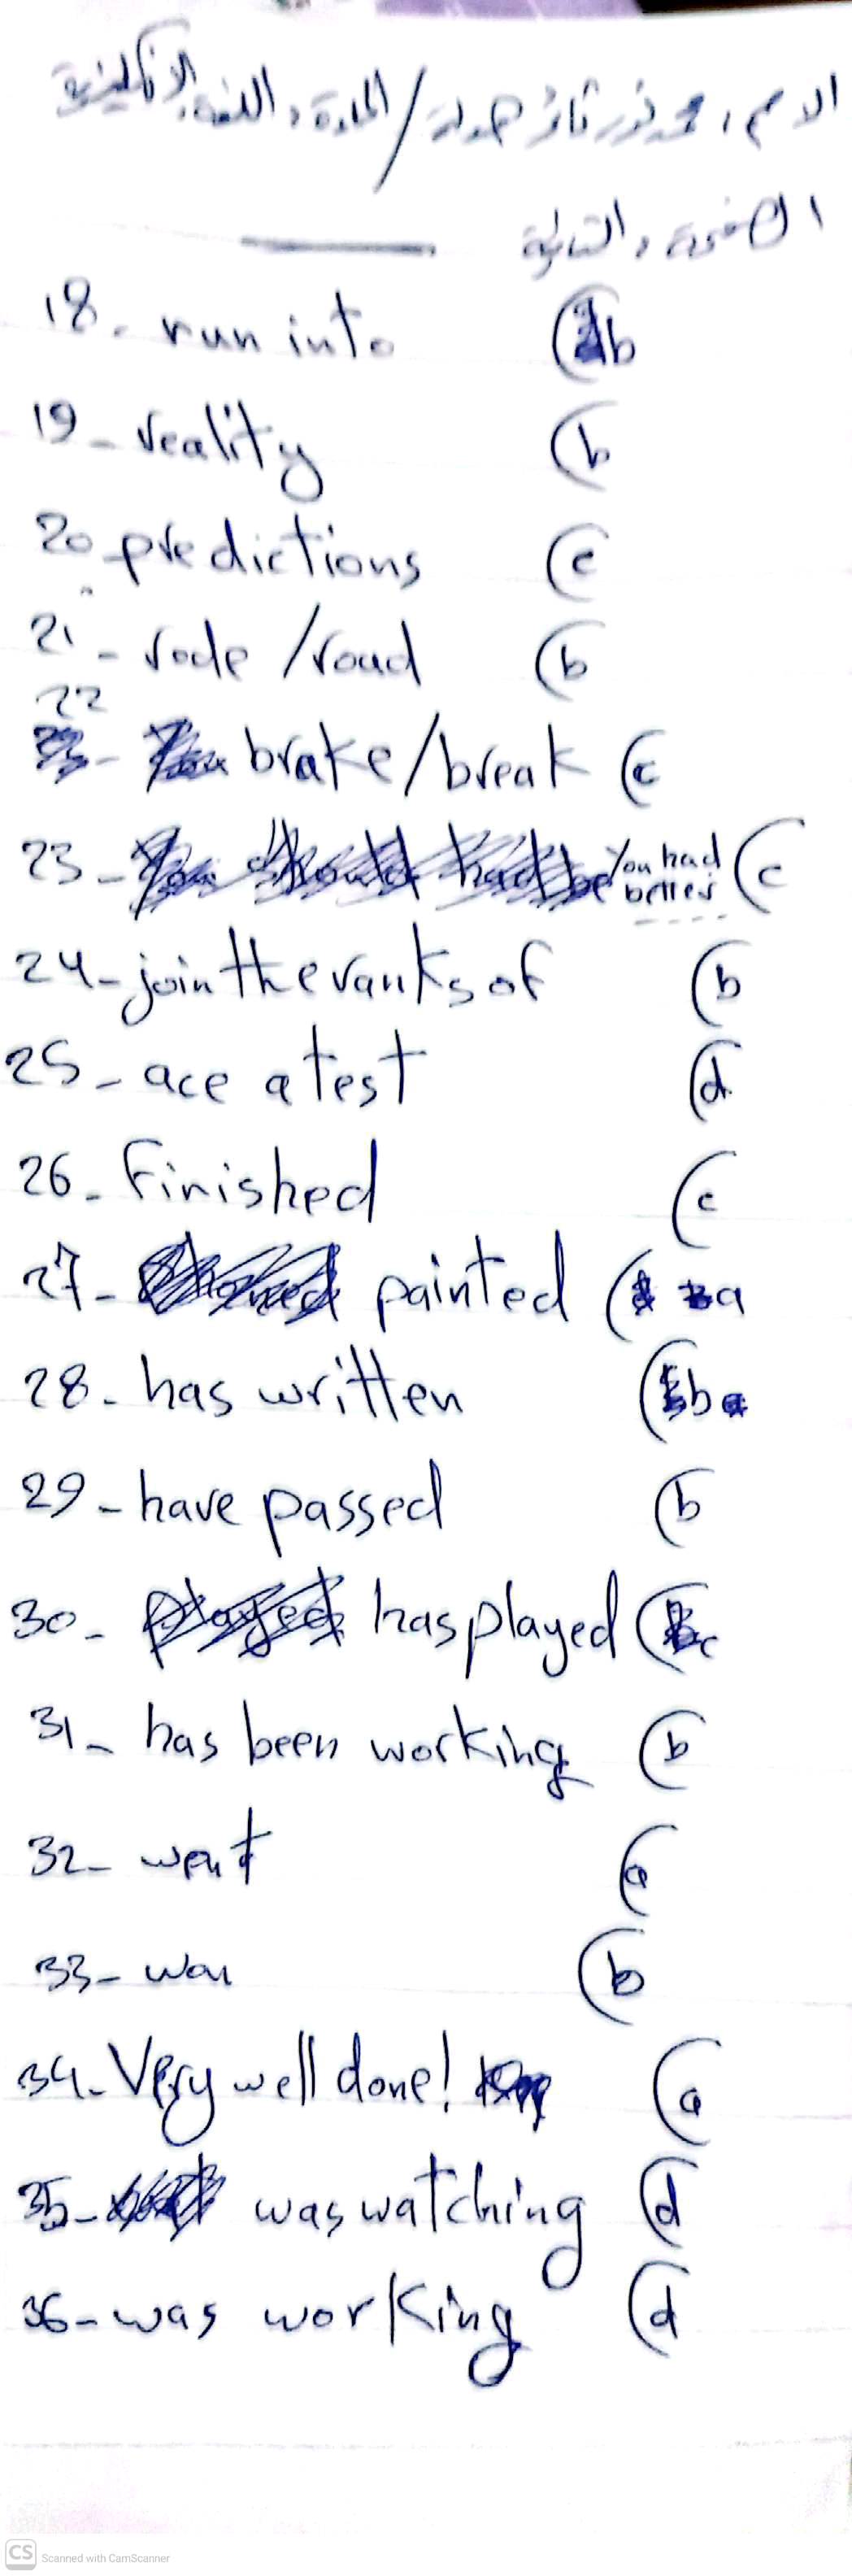 الاسم: / المادة: اللغة الانكليزية
الصفحة: الثانية
18- run into (b
19- reality (b
20- predictions (c
21- rode /road (b
22 - brake/break (c
23- You had better (c
24- join the ranks of (b
25- ace a test (d
26- finished (c
27- painted (a
28- has written (b
29- have passed (b
30- has played (c
31- has been working (b
32- went (a
33- won (b
34- Very well done! (a
35- was watching (d
36- was working (d
CS Scanned with CamScanner